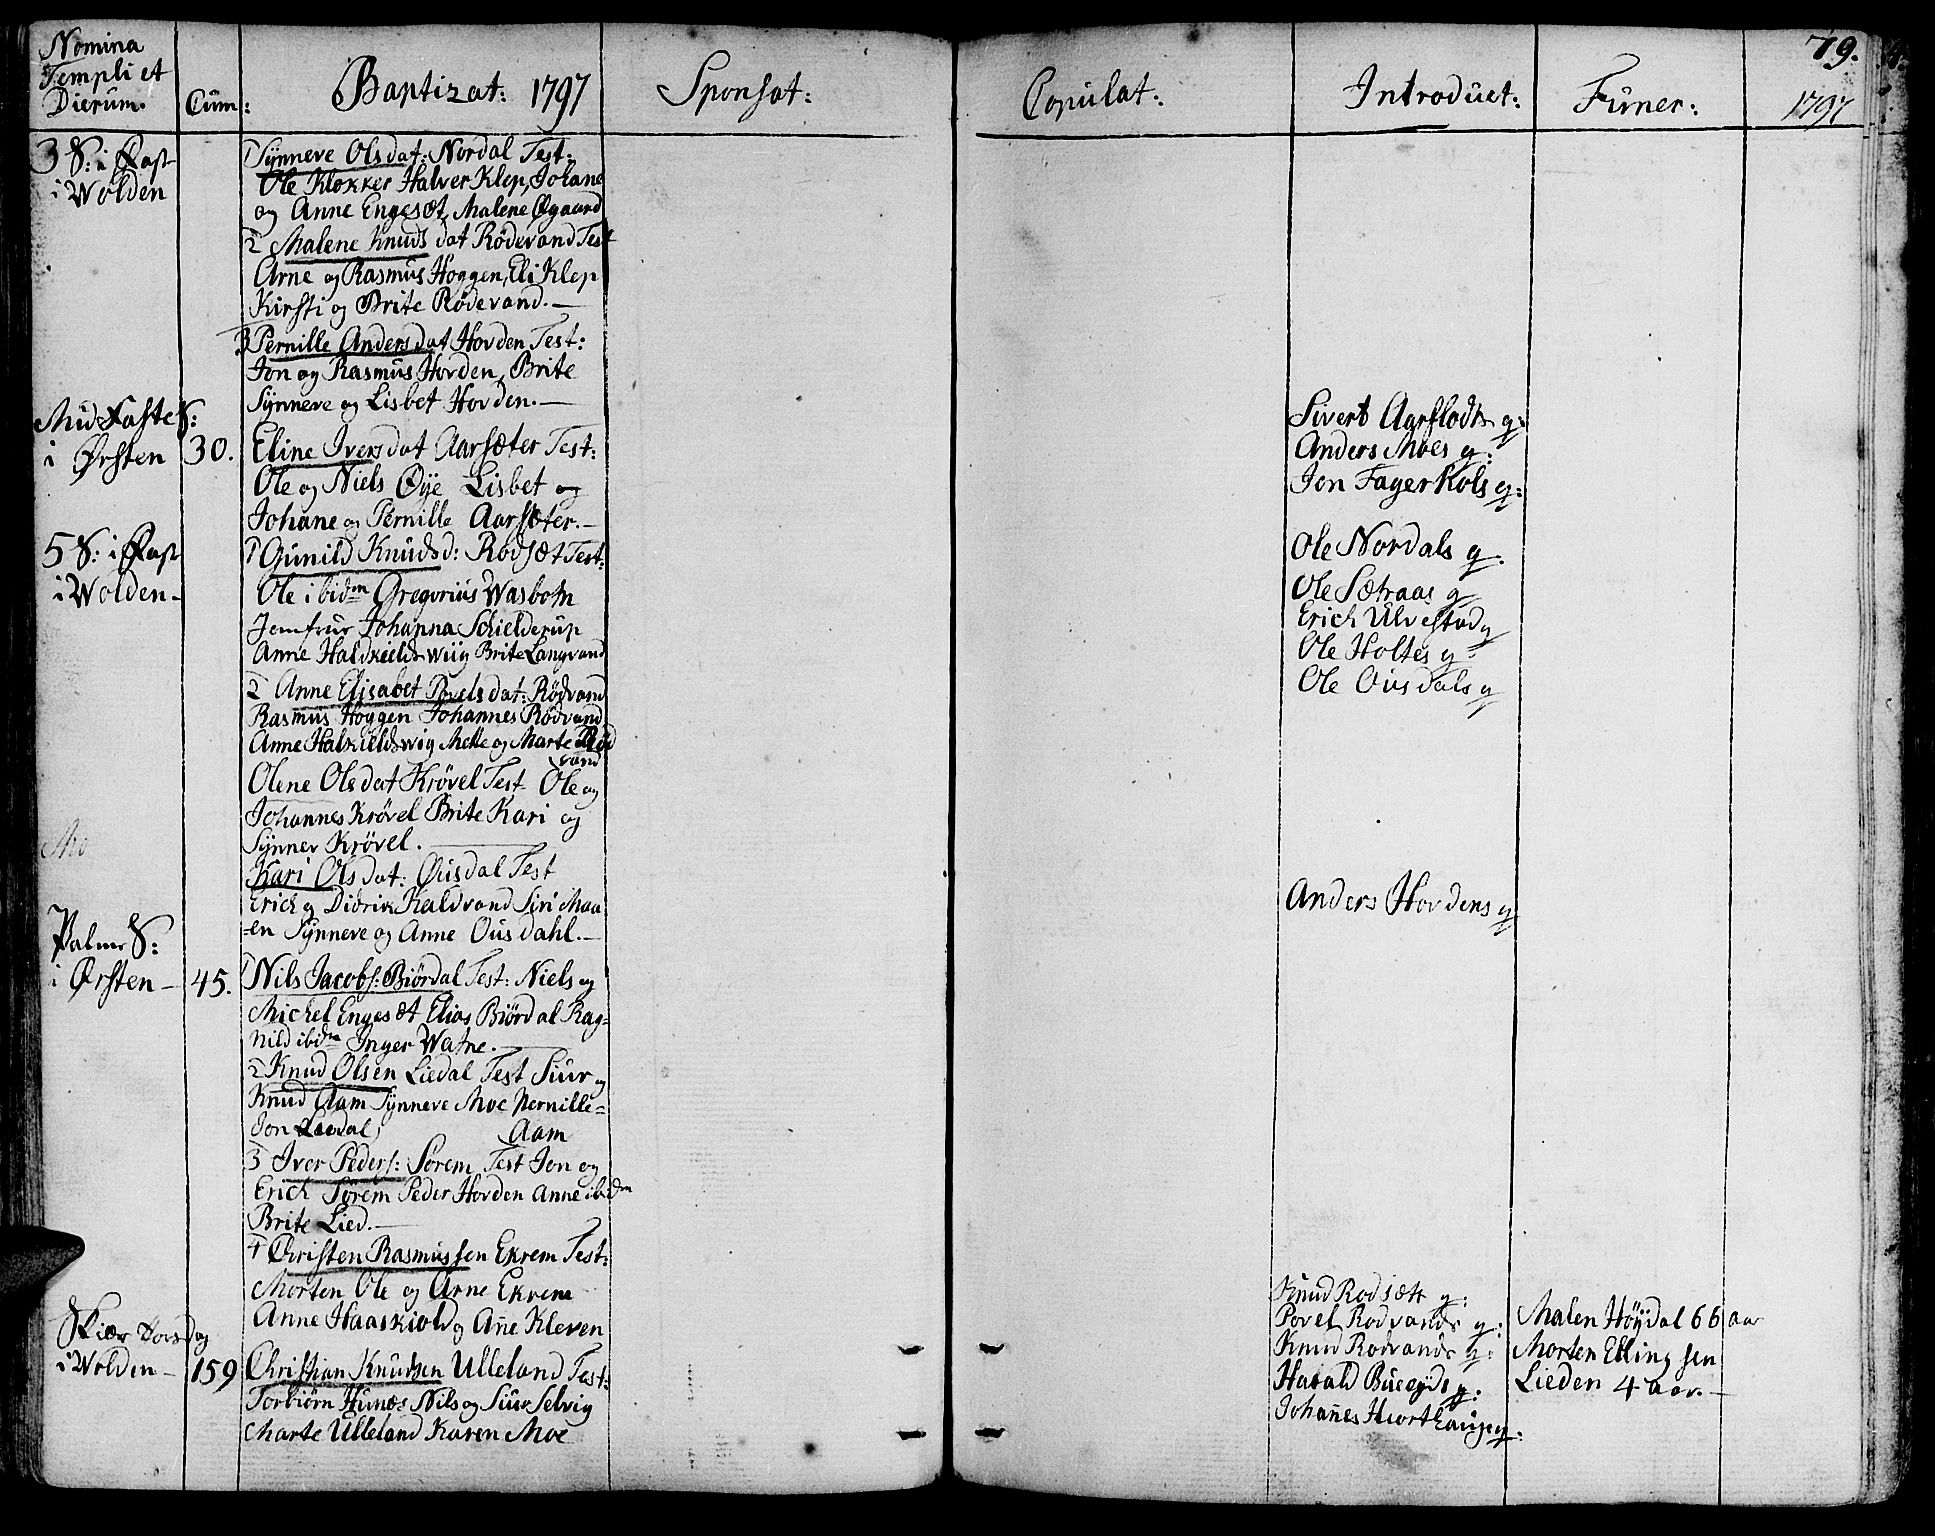 Nomina
Templi et
Dierum.
Cum:
Baptizat: 1797
Sponsat:
Copulat:
Introduct:
Funer:
79.
1797
3 S: i Fast
i Wolden
1 Synneve Olsdat: Nordal Test:
Ole Klokker Halver Klep, Johane
og Anne Engesæt, Malene Øgaard
2 Malene Knudsdat Rødevand Test
Arne og Rasmus Hoggen, Eli Klep
Kirsti og Brite Rødevand.—
3 Pernille Andersdat Hovden Test:
Jon og Rasmus Hovden, Brite
Synneve og Lisbet Hovden.—
Mid Faste S:
i Ørsten
30.
Eline Iversdat Aarsæter Test:
Ole og Niels Øye Lisbet og
Johane og Pernille Aarsæter.—
5 S: i Fast
i Wolden—
1 Gunild Knudsd: Rodsæt Test:
Ole ibidm Gregorius Wasbotn
Jomfrur Johanna Schielderup
Anne Haldkieldswiig Brite Langvand
2 Anne Elisabet Povelsdat: Rødvand
Rasmus Hoggen Johannes Rødvand
Anne Halkieldswig Mette og Marte Rød
vand
Olene Olsdat Krøvel Test Ole og
Johannes Krøvel Brite Kari og
Synnev Krøvel.—
Kari Olsdat: Ousdal Test
Erich og Didrik Kaldvand Siri Maa
-en Synneve og Anne Ousdahl.—
Palme S:
i Ørsten—
45.
1 Nils Jacobs: Biørdal Test: Niels og
Michel Engesæt Elias Biørdal Rag-
nild ibidm Inger Watne.—
2 Knud Olsen Liedal Test Siur og
Knud Aam Synneve Moe Pernille=
Jon Liedal, Aam
3 Iver Peders: Sørem Test Jon og
Erich Sørem Peder Hovden Anne ibidm
Brite Lied.—
4 Christen Rasmussen Ekrem Test:
Morten Ole og Arne Ekrem
Anne Haaskiold og Ane Kleven
Skiær Torsdag
i Wolden—
159
Christian Knudsen Ulleland Test:
Torbiørn Hunæs Nils og Siur Selvig
Marte Ulleland Karen Moe
Sivert Aarflodts q:
Anders Moes q:
Jon Fagerhols q:
Ole Nordals q.
Ole Sætraas q
Erich Ulvestad q
Ole Holtes q
Ole Ousdals q
Anders Hovdens q
Knud Rodsætt q:
Povel Rodvands q:
Knud Rodvands q:
Harald Bueeyds q:
Johanes Hiorthaugs q:
Malen Høydal 66 aar
Morten Ellingsen
Lieden 4 aar.—